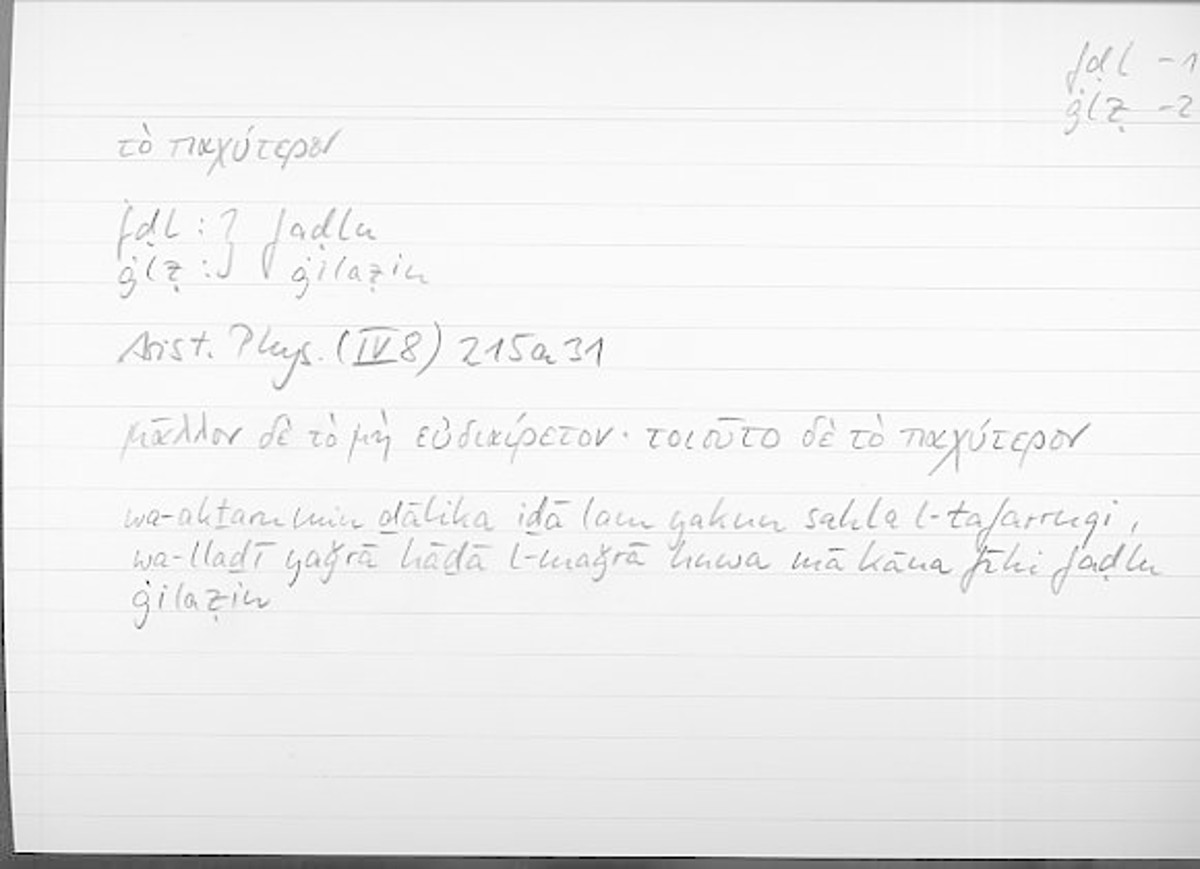 fḍl -1
ġlẓ -2
τὸ παχύτερον
fḍl : } faḍlu
ġlẓ : } ġilaẓin
Arist. Phys. (IV 8) 215a31
μᾶλλον δὲ τὸ μὴ εὐδιαίρετον· τοιοῦτο δὲ τὸ παχύτερον
wa-akṯaru min ḏālika iḏā lam yakun sahla l-tafarruqi,
wa-llaḏī yaǧrā hāḏā l-maǧrā huwa mā kāna fīhi faḍlu
ġilaẓin